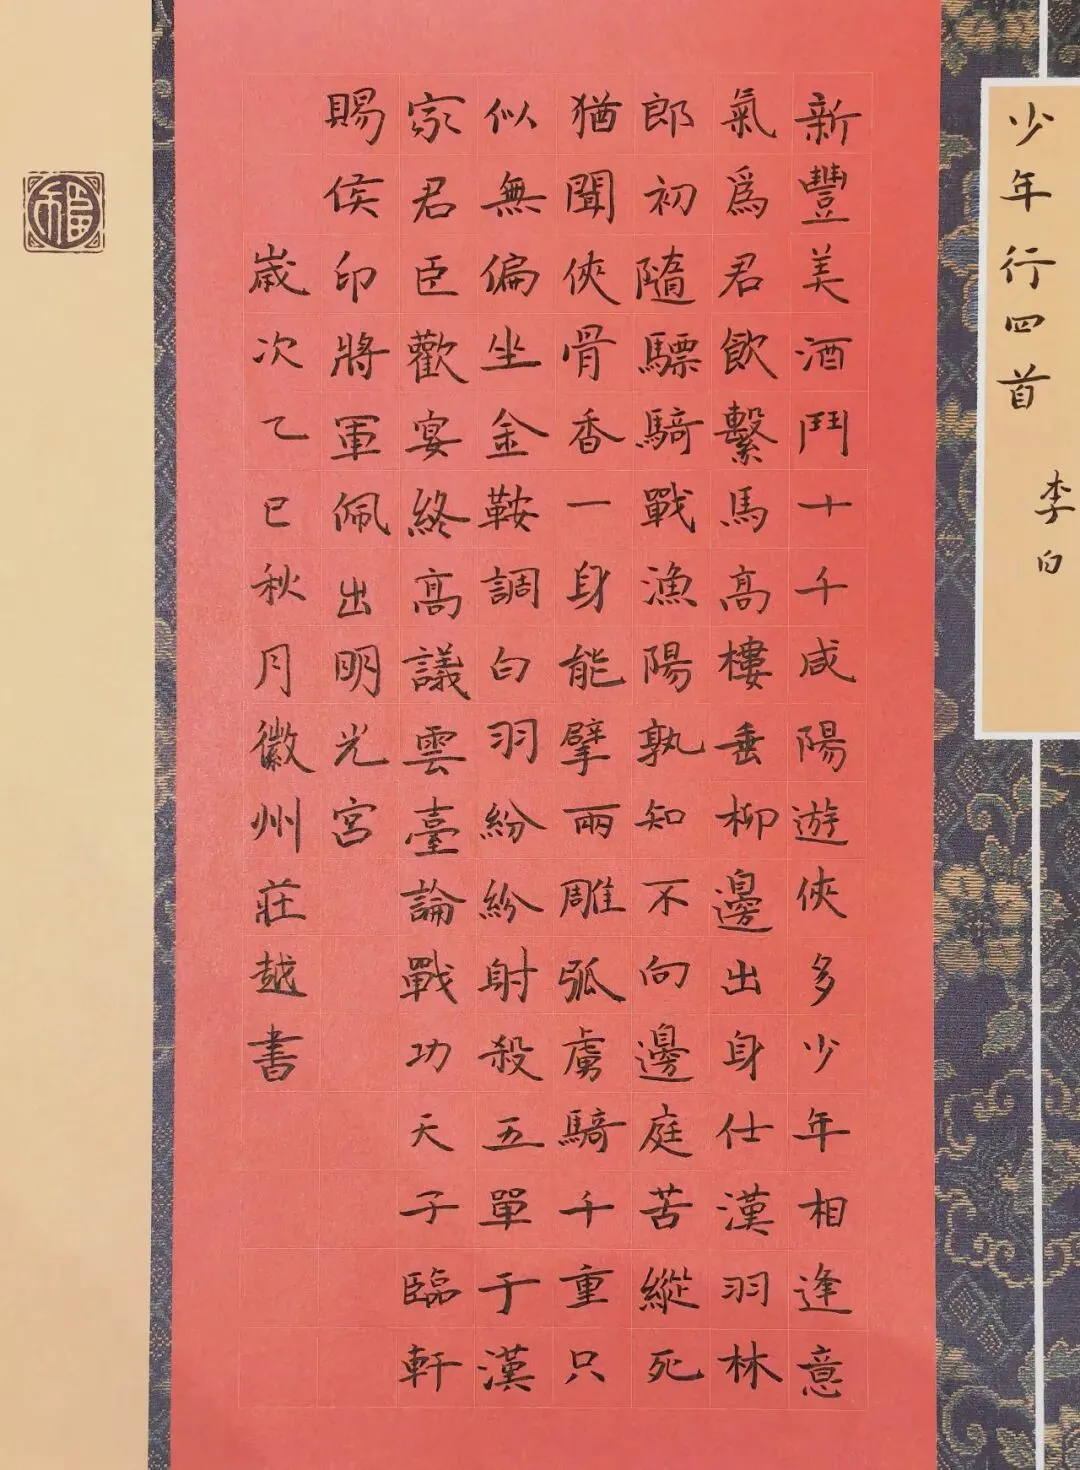 少年行四首
李白
新豐美酒鬥十千咸陽遊俠多少年相逢意
氣爲君飲繫馬高樓垂柳邊出身仕漢羽林
郎初隨驃騎戰漁陽孰知不向邊庭苦縱死
猶聞俠骨香一身能擘兩雕弧虜騎千重只
似無偏坐金鞍調白羽紛紛射殺五單于漢
家君臣歡宴終高議雲臺論戰功天子臨軒
賜侯印將軍佩出明光宮
歲次乙巳秋月徽州莊越書
福